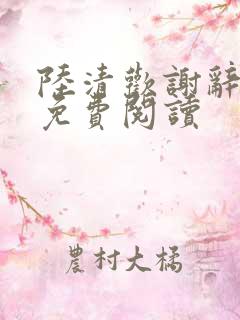 陸清歡謝辭
免費閱讀
農村大橘